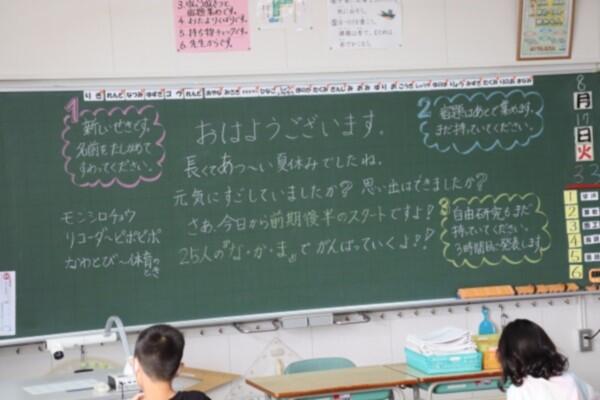 3.ゆうびぼうって
宿題集めです。
4.おたよりくばりです。
5.持ち物チェックです。
6.先生からです。
1
新しいせきです。
名前をたしかめて
すわってください。
おはようございます。
長くてあつ〜い夏休みでしたね。
元気にすごしていましたか？ 思い出はできましたか？
さあ、今日から前期後半のスタートですよ！
25人の『な・か・ま』でがんばっていくよ！！
モンシロチョウ
リコーダ〜ピポピポ
なわとび〜体育のとき
2
宿題はあとで集めます。
まだ持っていてください。
3
自由研究もまだ
持っていてください。
3時間目に発表します。
8
月
17
日
火
33
1
2
3
4
5
6